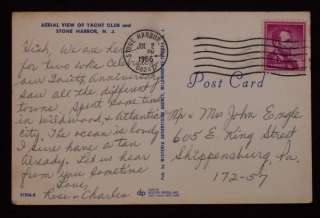 AERIAL VIEW OF YACHT CLUB and
STONE HARBOR, N. J.
Hich, We are here
for two wks Cele
our Anniversary
saw all the different
towns. Spent some time
in Wildwood & Atlantic
city. The ocean is lovely
I sure have a tan
Already. Let us hear
from you sometime
Love,
Rose & Charles
STONE HARBOR
JUL
PM
1966
Post Card
Mr + Mrs John Engle
605 E. King Street
Shippensburg Pa.
172-57
dp